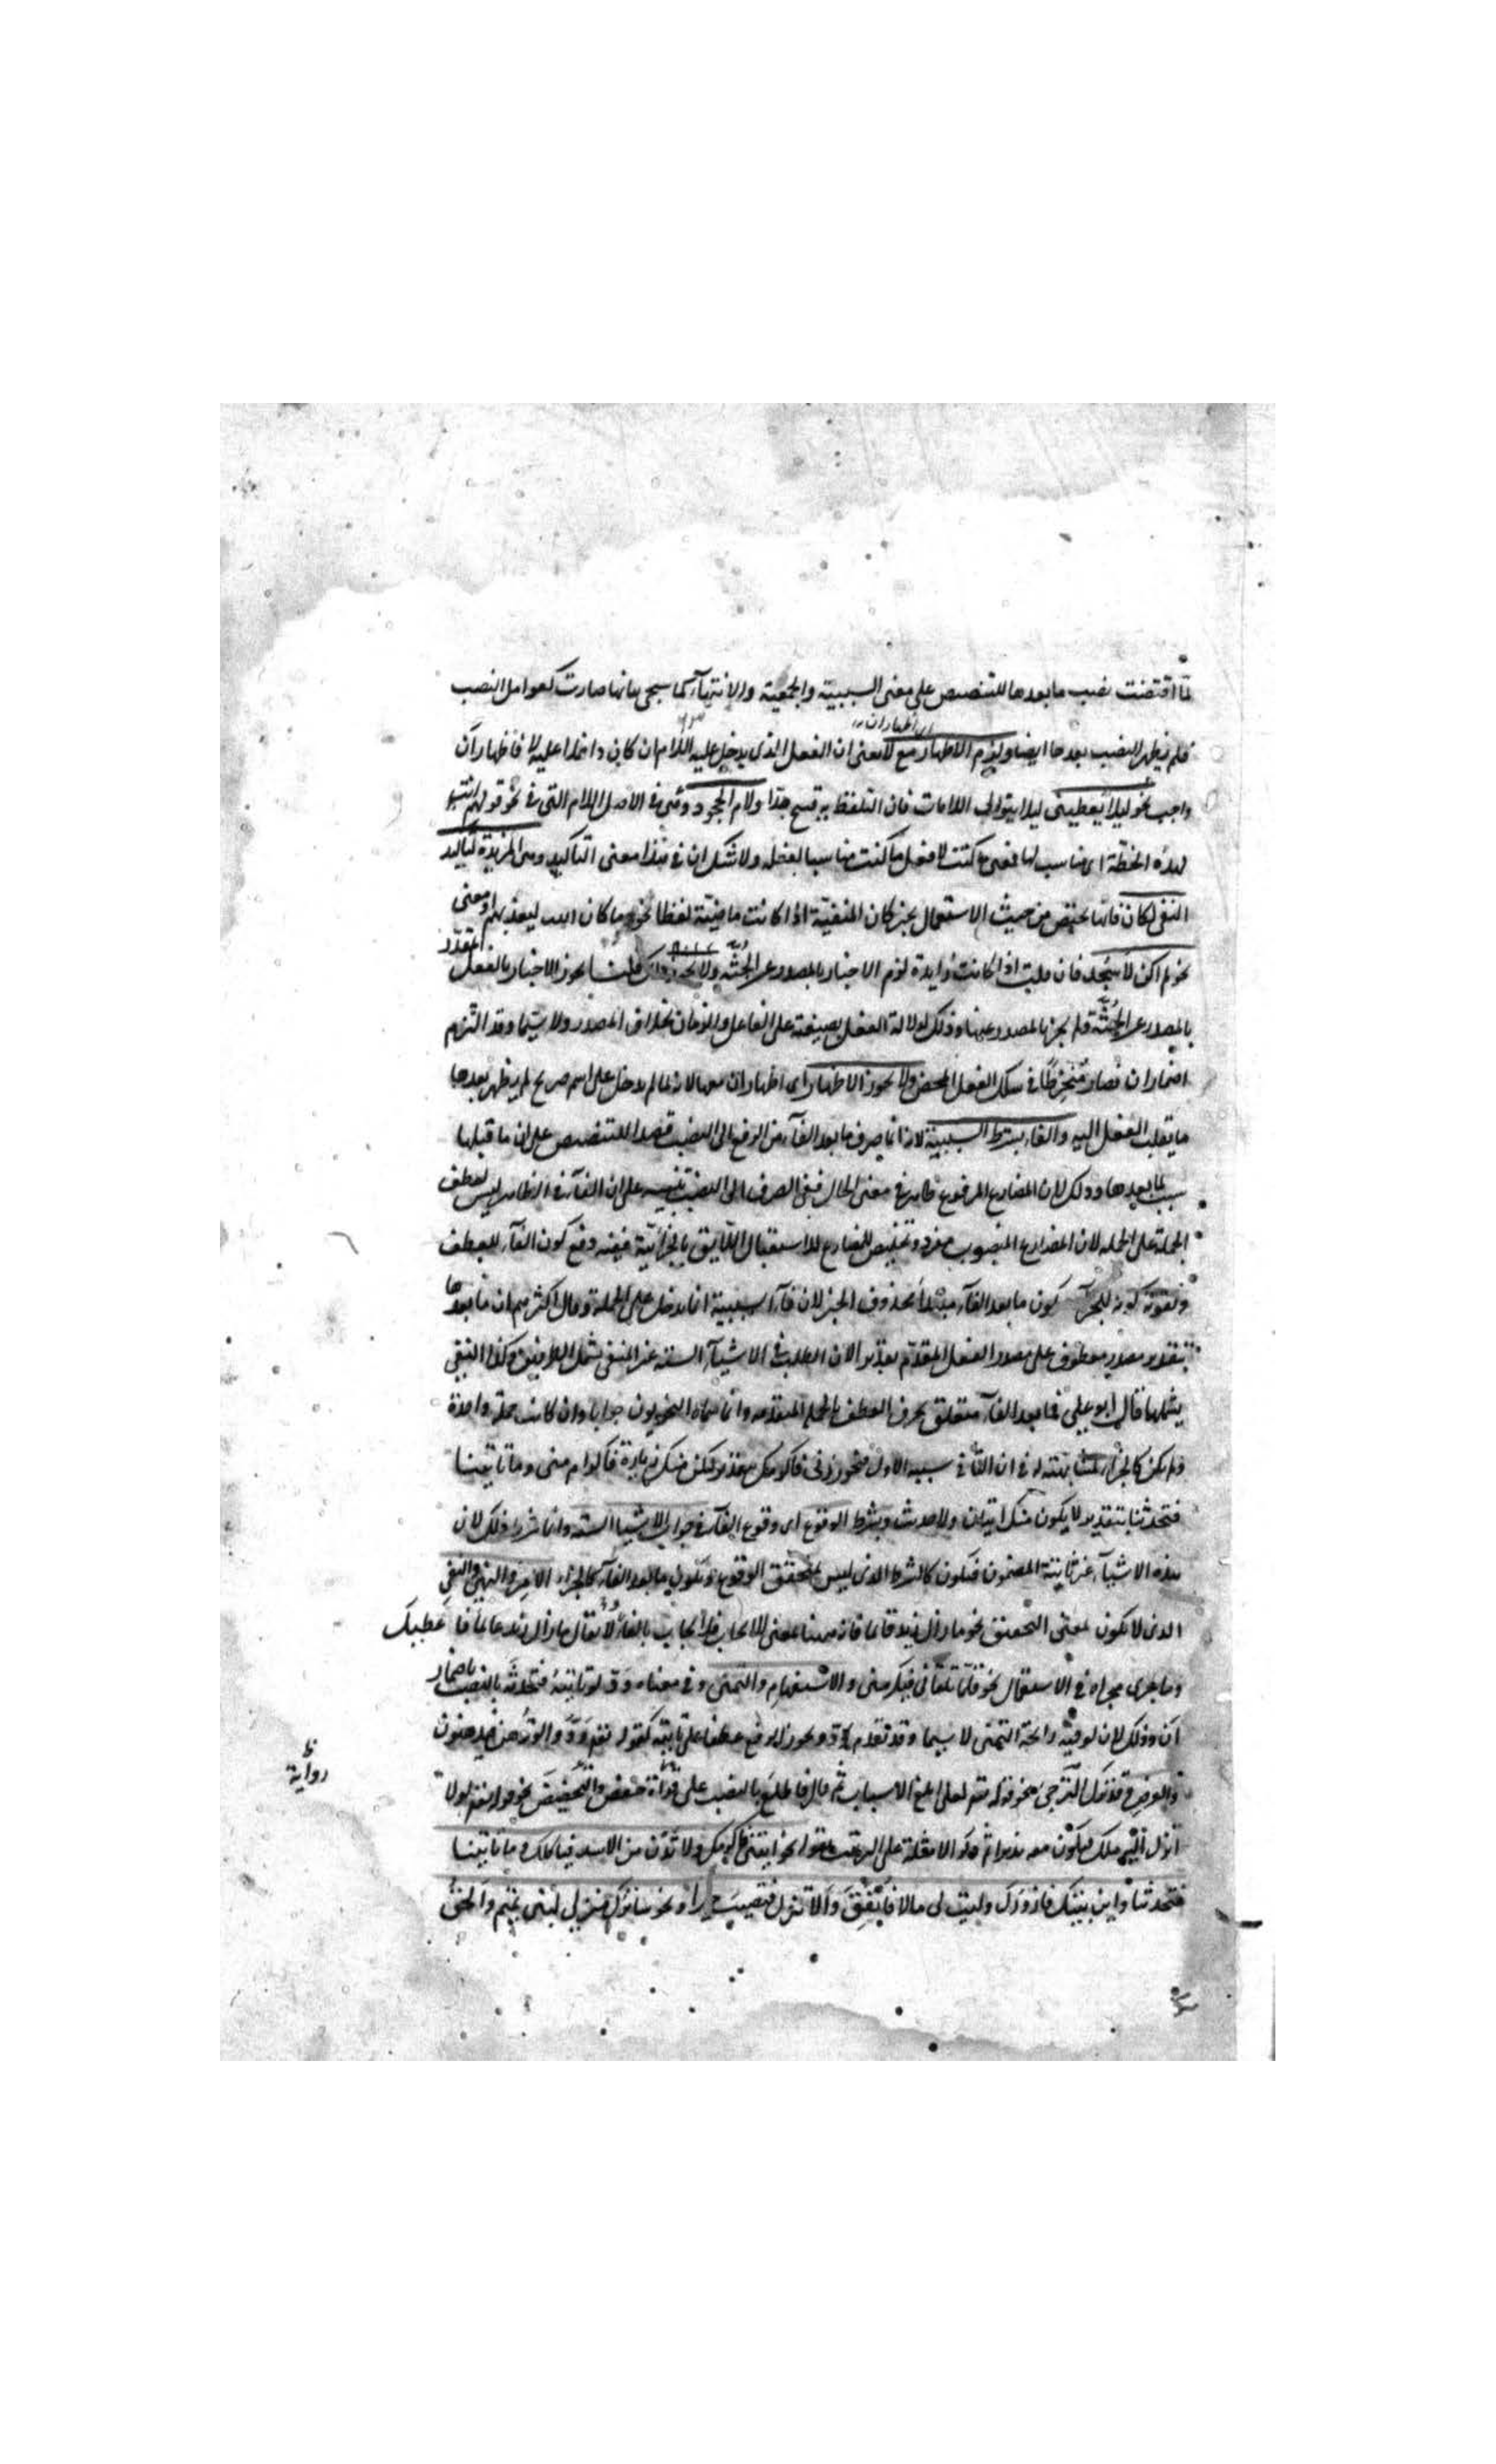 لما اقتضت نصب ما بعدها للتنصيص على معنى السببية والجمعية والانتهاء كما سيجى بيانها صارت كعوامل النصب
فلم يظهر النصب بعدها ايضا ويلزم الاظهار مع لا يعنى ان الفعل الذى يدخل عليه اللام ان كان داخلا عليه لا فاظهار ان
اى اظهار ان
واجب نحو ليلا يعطينى ليلا يتوالى اللامات فان التلفظ به قبيح جدا ولام الجحود وهى فى الاصل اللام التى فى نحو قولهم انت
لهذه الخطة اى مناسب لها فمعنى ما كنت لافعل ما كنت مناسبا لفعله ولا شك ان فى هذا معنى التاكيد وهى المزيدة لتاكيد
النفى لكان فانها يختص من حيث الاستعمال بخبر كان المنفية اذا كانت ماضية لفظا نحو ما كان الله ليعذبهم او معنى
نحو لم اكن لاسجد فان قلت اذا كانت زايدة لزم الاخبار بالمصدر عن الجثة ولا يجوز ذلك قلنا يجوز الاخبار بالفعل
المقدر
بالمصدر عن الجثة ولم يجز بالمصدر عنها وذلك لدلالة الفعل بصيغته على الفاعل والزمان بخلاف المصدر ولا سيما وقد التزم
اضمار ان فصار منخرطا فى سلك الفعل المحض ولا يجوز الاظهار اى اظهار ان معها لانه لما لم يدخل على اسم صريح لم يظهر بعدها
ما يقلب الفعل اليه والفاء بشرط السببية لانه انما يصرف ما بعد الفاء من الرفع الى النصب قصدا للتنصيص على ان ما قبلها
سبب لما بعدها وذلك لان المضارع المرفوع ظاهر فى معنى الحال ففى الصرف الى النصب تنبيه على ان الفاء فى الظاهر ليس لعطف
الجملة على الجملة لان المضارع المنصوب مفرد وتخليص للمضارع للاستقبال اللايق بالجزائية ففيه دفع كون الفاء للعطف
وتقوية كونه للجزاء كون ما بعد الفاء مبتدا محذوف الخبر لان فاء السببية انما يدخل على الجملة وقال اكثرهم ان ما بعدها
بتقدير مصدر معطوف على مصدر الفعل المتقدم تقديرا لان الطلب فى الاشياء الستة غير المنفى يشمل الطرفين وكذا النفى
يشملها قال ابو على فما بعد الفاء متعلق بحرف العطف بالجملة المتقدمة وانما سماه النحويون جوابا وان كانت جملة واحدة
ولم يكن كالجزاء لمشابهته له فى ان الثانى سببه الاول فنحو زرنى فاكرمك تقديره ليكن منك زيارة فاكرام منى وما تاتينا
فتحدثنا بتقدير لا يكون منك اتيان ولا حديث وبشرط الوقوع اى وقوع الفاء فى جواب الاشياء الستة وانما شرط ذلك لان
هذه الاشياء غير ثابتة المضمون فتكون كالشرط الذى ليس بمتحقق الوقوع وتكون ما بعد الفاء كالجزاء الامر والنهى والنفى
الذى لا يكون لمعنى التحقيق نحو ما زال زيد قائما فانه ههنا بمعنى الايجاب فلا يجاب بالفاء ولا يقال ما زال زيد عالما فاعطيك
وما جرى مجراه فى الاستعمال نحو قلما تلقانى فتكرمنى والاستفهام والتمنى وفى معناه ود لو تاتيه فتحدثه بالنصب باضمار
ان وذلك لان لو فيه رايحة التمنى لا سيما وقد تقدم ود ويجوز الرفع عطفا على تاتيه كقوله تعالى ودوا لو تدهن فيدهنون
والعرض وقد يذكر الترجى نحو قوله تعالى لعلى ابلغ الاسباب ثم قال فاطلع بالنصب على قراءة حفص والتحضيض نحو قوله تعالى لولا
رواية
انزل اليه ملك فيكون معه نذيرا ثم ذكر الامثلة على الترتيب بقوله نحو ايتنى فاكرمك ولا تدن من الاسد فياكلك وما تاتينا
فتحدثنا واين بيتك فازورك وليت لى مالا فانفق والا تنزل فتصيب خيرا ونحو ساترك منزلى لبنى تميم والحق